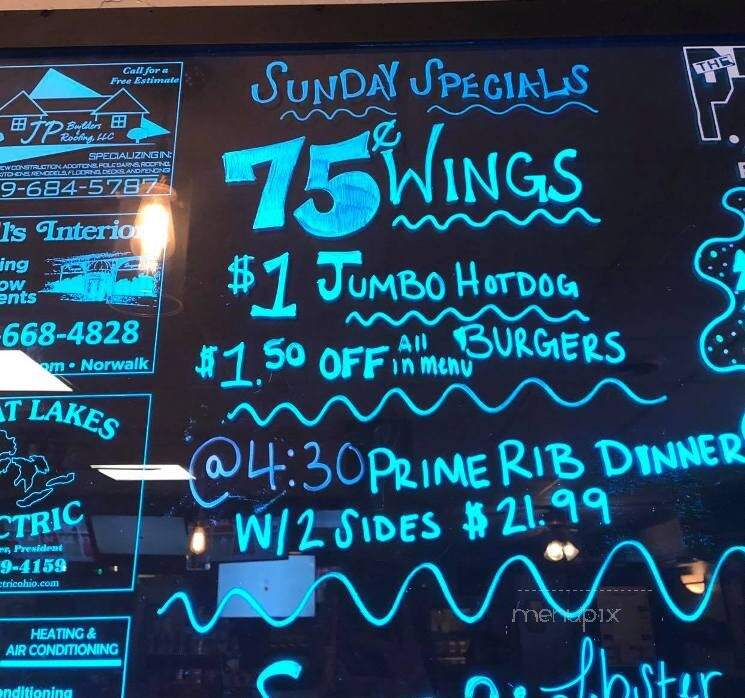 Call for a
Free Estimate
JP Builders
Roofing, LLC
SPECIALIZING IN:
NEW CONSTRUCTION, ADDITIONS, POLE BARNS, ROOFING,
KITCHENS, REMODELS, FLOORING, DECKS, AND FENCING
9-684-5787
l's Interio
ing
ow
ents
-668-4828
om • Norwalk
AT LAKES
CTRIC
er, President
9-4159
ctricohio.com
HEATING &
AIR CONDITIONING
nditioning
SUNDAY SPECIALS
75¢ WINGS
$1 JUMBO HOTDOG
$1.50 OFF All in menu BURGERS
@4:30 PRIME RIB DINNER
W/2 SIDES $21.99
THE
P.
menupix